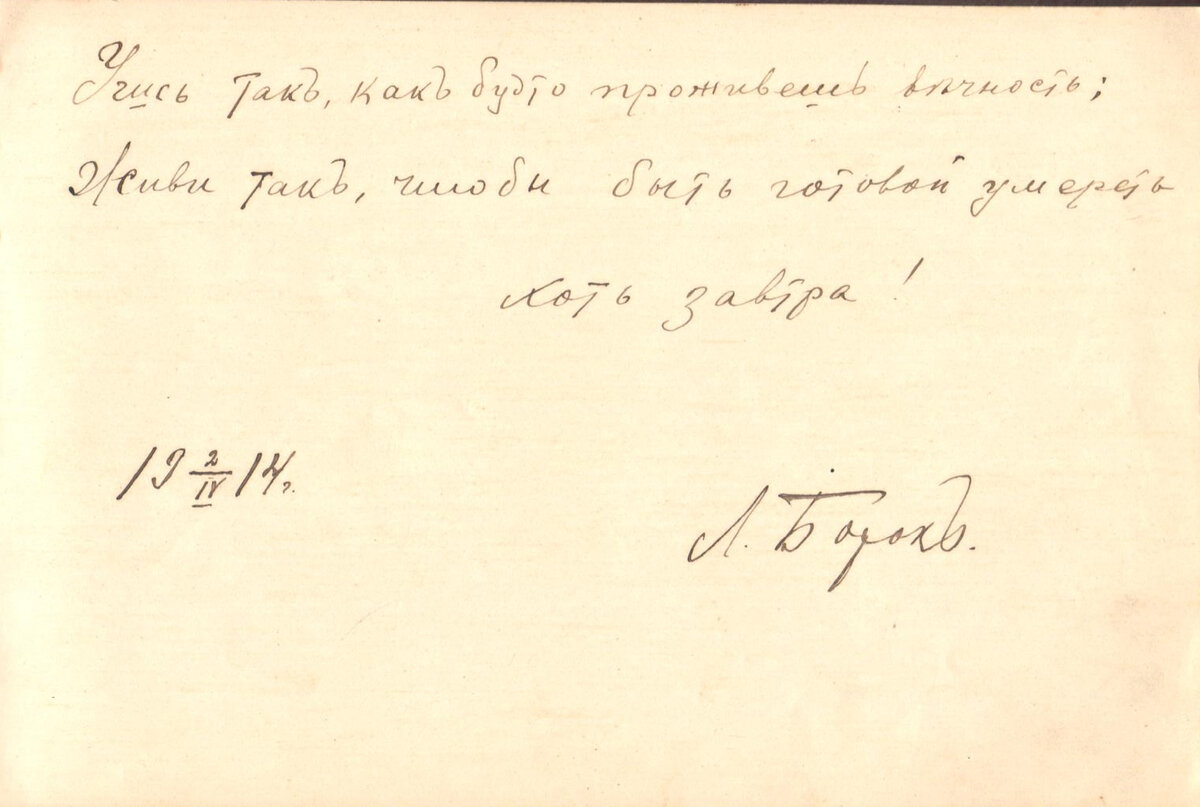 Учись такъ, какъ будто проживешь вѣчность;
Живи такъ, чтобы быть готовой умереть
хоть завтра!
19 2/IV 14 г.
Л. Борокъ.